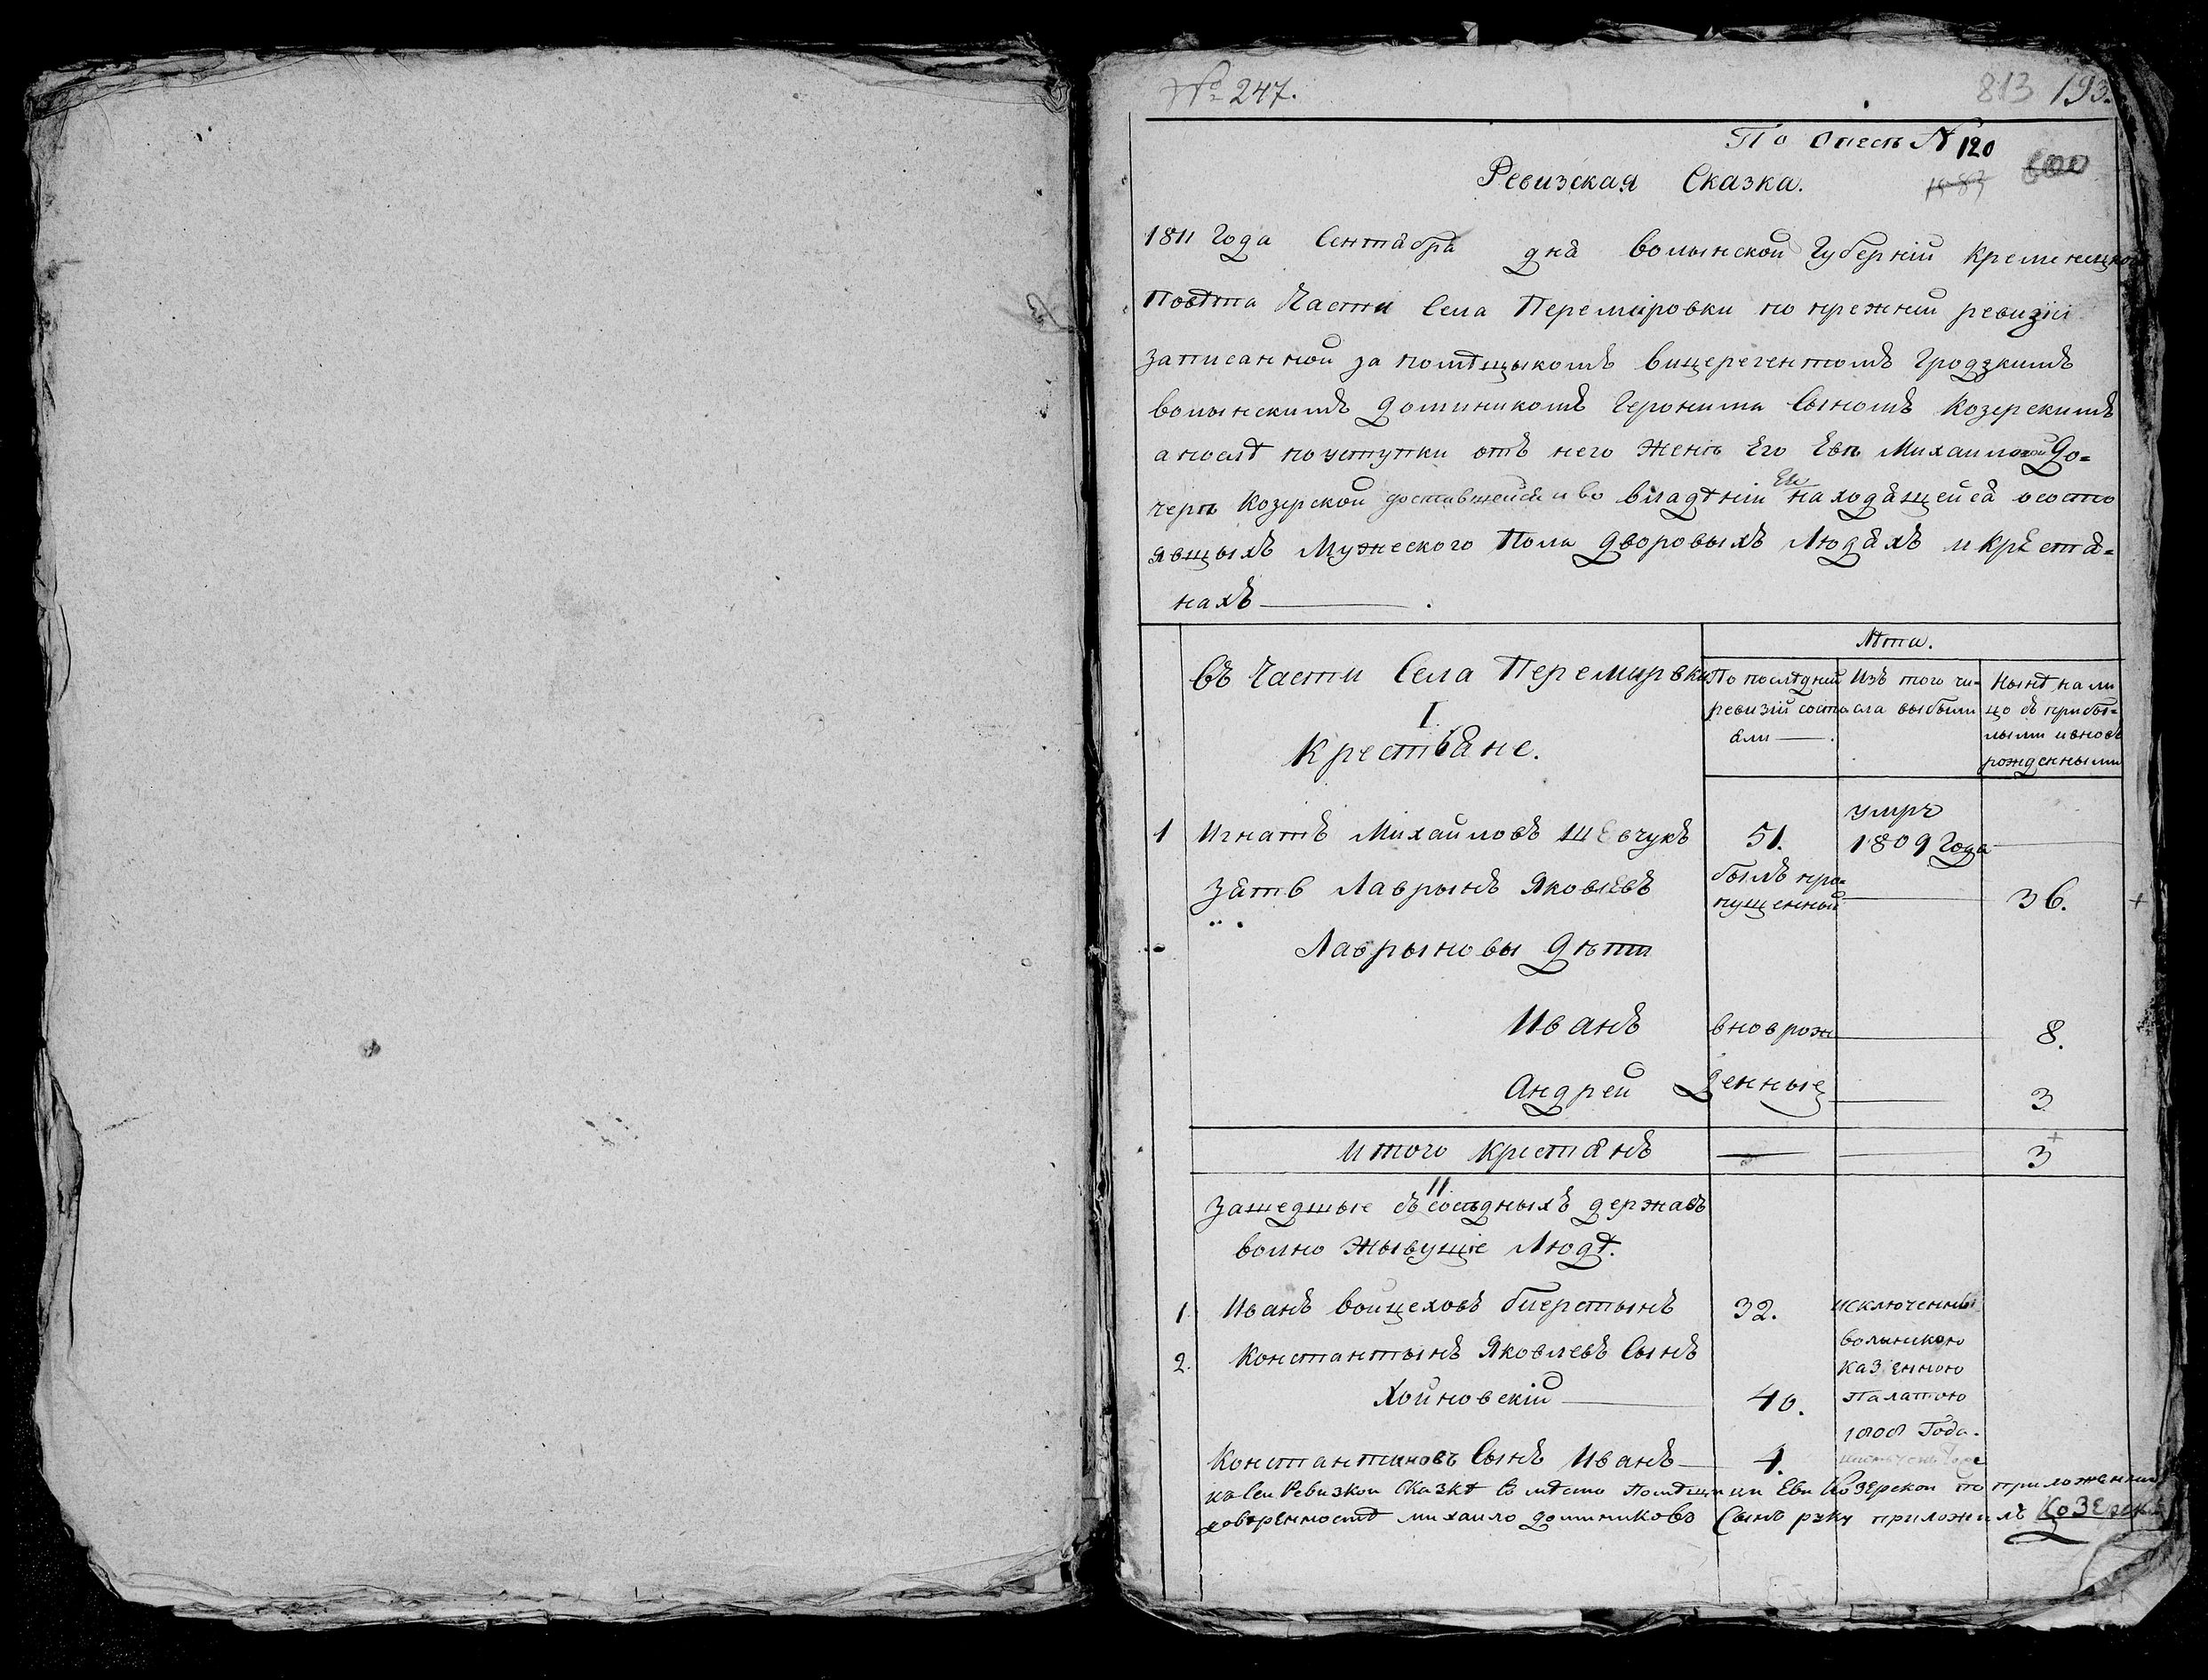 № 247.
813 193.
По описи № 120
600
Ревизская Сказка.
1811 Года Сентября дня Волынской Губерніи Кременецкого
Повѣта Части Села Перемировки по прежній ревизіи
записанной за помѣщыкомъ вицерегентомъ Гродзкимъ
волынскимъ Доминикомъ Геронима Сыномъ Козерскимъ
а послѣ поуступки отъ него Женѣ Его Евѣ Михайловой До=
черѣ Козерской доставшейся и во владѣніи Ею находящейся о состо
явщыхъ Мужеского Пола Дворовыхъ Людяхъ и Крѣстя=
нахъ
Въ Части Села Перемировки
I.
Крестьяне.
Лѣта.
По послѣдней ревизіи состо
яли
Изъ того чи=
сла выбыли
Нынѣ на ли
цо съ прибы=
лыми и вновь
рожденными
1 Игнатъ Михайловъ Шевчукъ 51. умре 1809 Года
Зять Лаврынъ Яковлевъ былъ про=
пущенной 36.
Лаврыновы Дѣти
Иванъ вноврож 8.
Андрей денные 3
Итого Крестянъ 3
II
Зашедшые съ сосѣдныхъ державъ
волно Жывущіе Людѣ.
1. Иванъ Войцеховъ Бперстынъ 32. исключенны
2. Константынъ Яковлевъ Сынъ
Хойновскій 40.
волынскою
казенною
Палатою
1808 Года.
Константиновъ Сынъ Иванъ 4.
къ Сеи Ревизкои Сказкѣ Вмѣсто Помѣщици Еви Козерскои по приложенной
довѣренностѣ михаило доминиковъ Сынъ руку приложилъ Козерскій